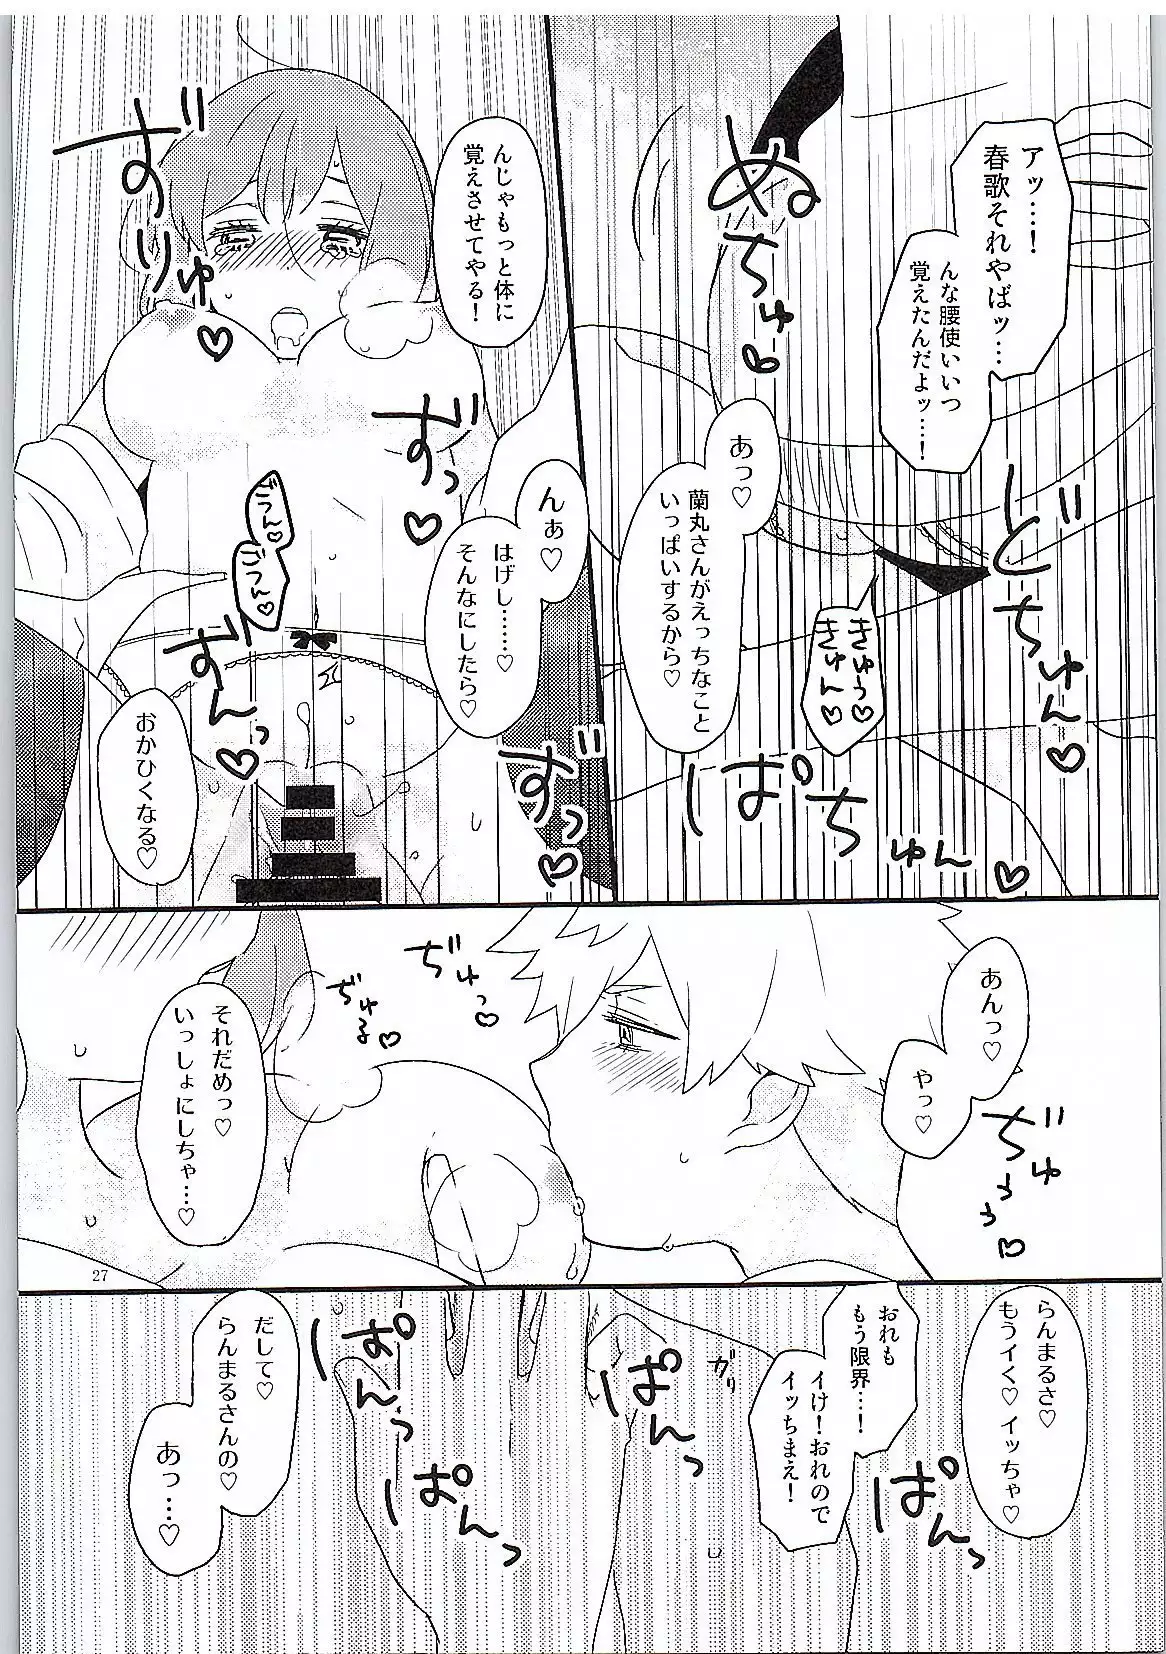 アッ…！
春歌それやばッ…
んな腰使いいつ
覚えたんだよッ…！
ぬちゅ♡
どちゅん♡
あっ♡
蘭丸さんがえっちなこと
いっぱいするから♡
きゅぅ♡
きゅん♡
ぱちゅん♡
んじゃもっと体に
覚えさせてやる！
ずりゅ♡
ずっ♡
んぁ♡
はげし……♡
そんなにしたら♡
ごつん♡
ごつん♡
ずんっ♡
ずっ♡
おかひくなる♡
あんっ♡
やっ♡
ぢゅぅぅ♡
ぢゅっ♡
ぢゅる♡
それだめっ♡
いっしょにしちゃ…♡
27
らんまるさ♡
もうイく♡イッちゃ♡
おれも
もう限界…！
イけ！おれので
イッちまえ！
ガリ
ぱんっ
ぱんっ
ぱんっ
ぱんっ
だして♡
らんまるさんの♡
あっ…♡